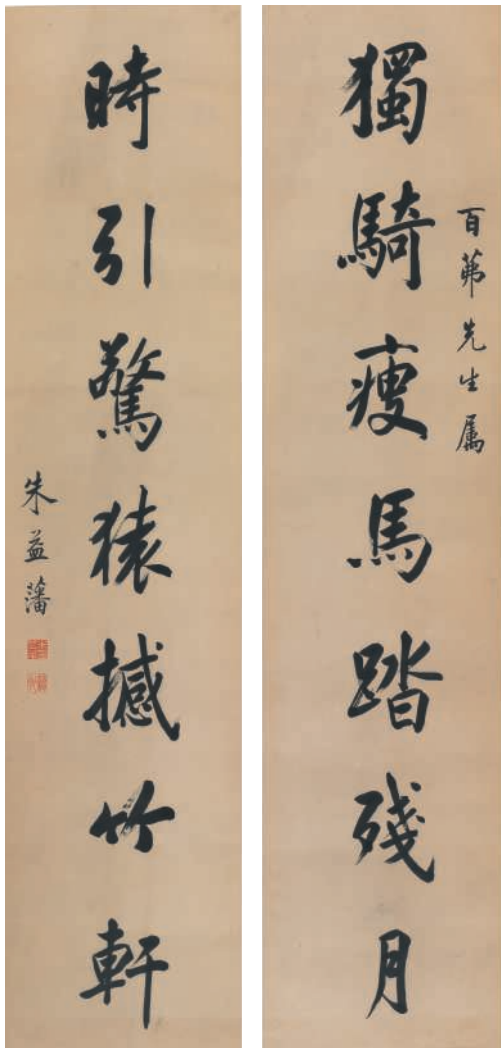 獨騎瘦馬踏殘月
百茀先生屬
時引驚猿撼竹軒
朱益藩